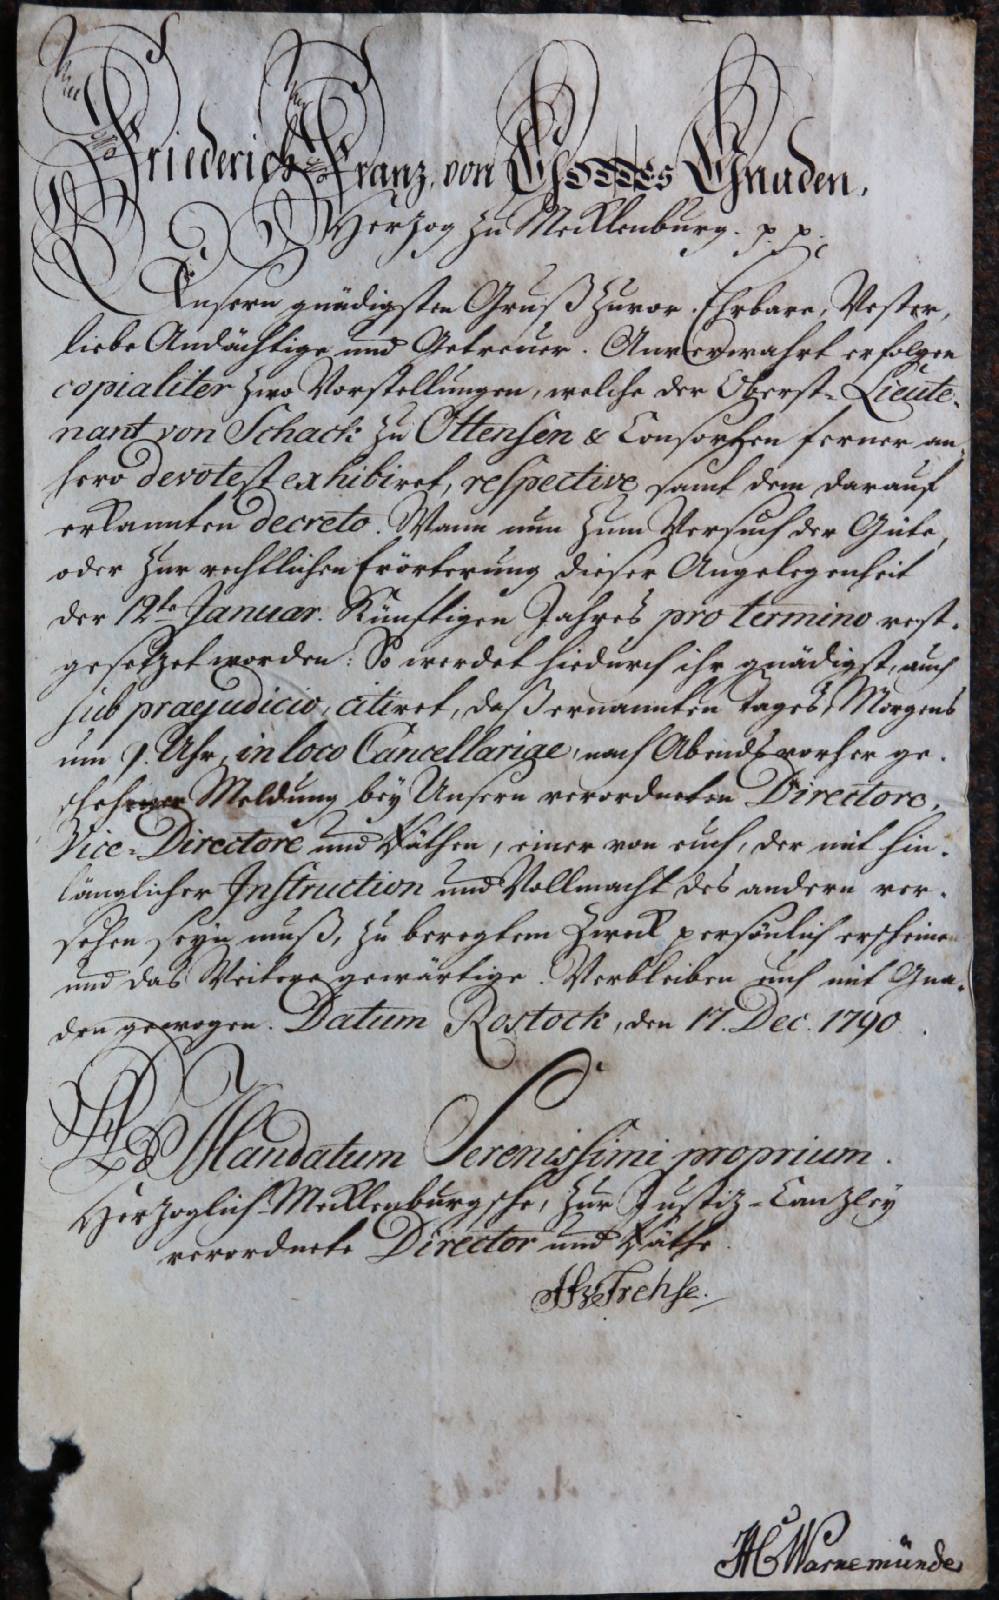 Friederich Franz, von GOTTES Gnaden,
Herzog zu Mecklenburg. p. p.
Unsern gnädigsten Gruß zuvor. Ehrbare, Vester,
liebe Andächtige und Getreuer. Anverwahrt erfolgen
copialiter zwo Vorstellungen, welche der Oberst-Lieute-
nant von Schack zu Ottensen & Consorten ferner an
hero devotest exhibiret, respective samt dem darauf
erkannten decreto. Wann nun zum Versuch der Güte,
oder zur rechtlichen Erörterung dieser Angelegenheit
der 12te Januar. künftigen Jahres pro termino vest-
gesetzet worden: So werdet hiedurch ihr gnädigst, auch
sub praejudicio, citiret, daß ernannten Tages, Morgens
um 9. Uhr, in loco Cancellariae, nach Abends vorher ge-
schehener Meldung bey Unsern verordneten Directore,
Vice-Directore und Räthen, einer von euch, der mit hin-
länglicher Instruction und Vollmacht des andern ver-
sehen seyn muß, zu beregtem Zweck persönlich erscheinen
und das Weitere gewärtige. Verbleiben euch mit Gna-
den gewogen. Datum Rostock, den 17. Dec. 1790.
Ad Mandatum Serenissimi proprium.
Herzoglich-Mecklenburgsche, zur Justiz-Canzley
verordnete Director und Räthe.
Trehse.
Warnemünde